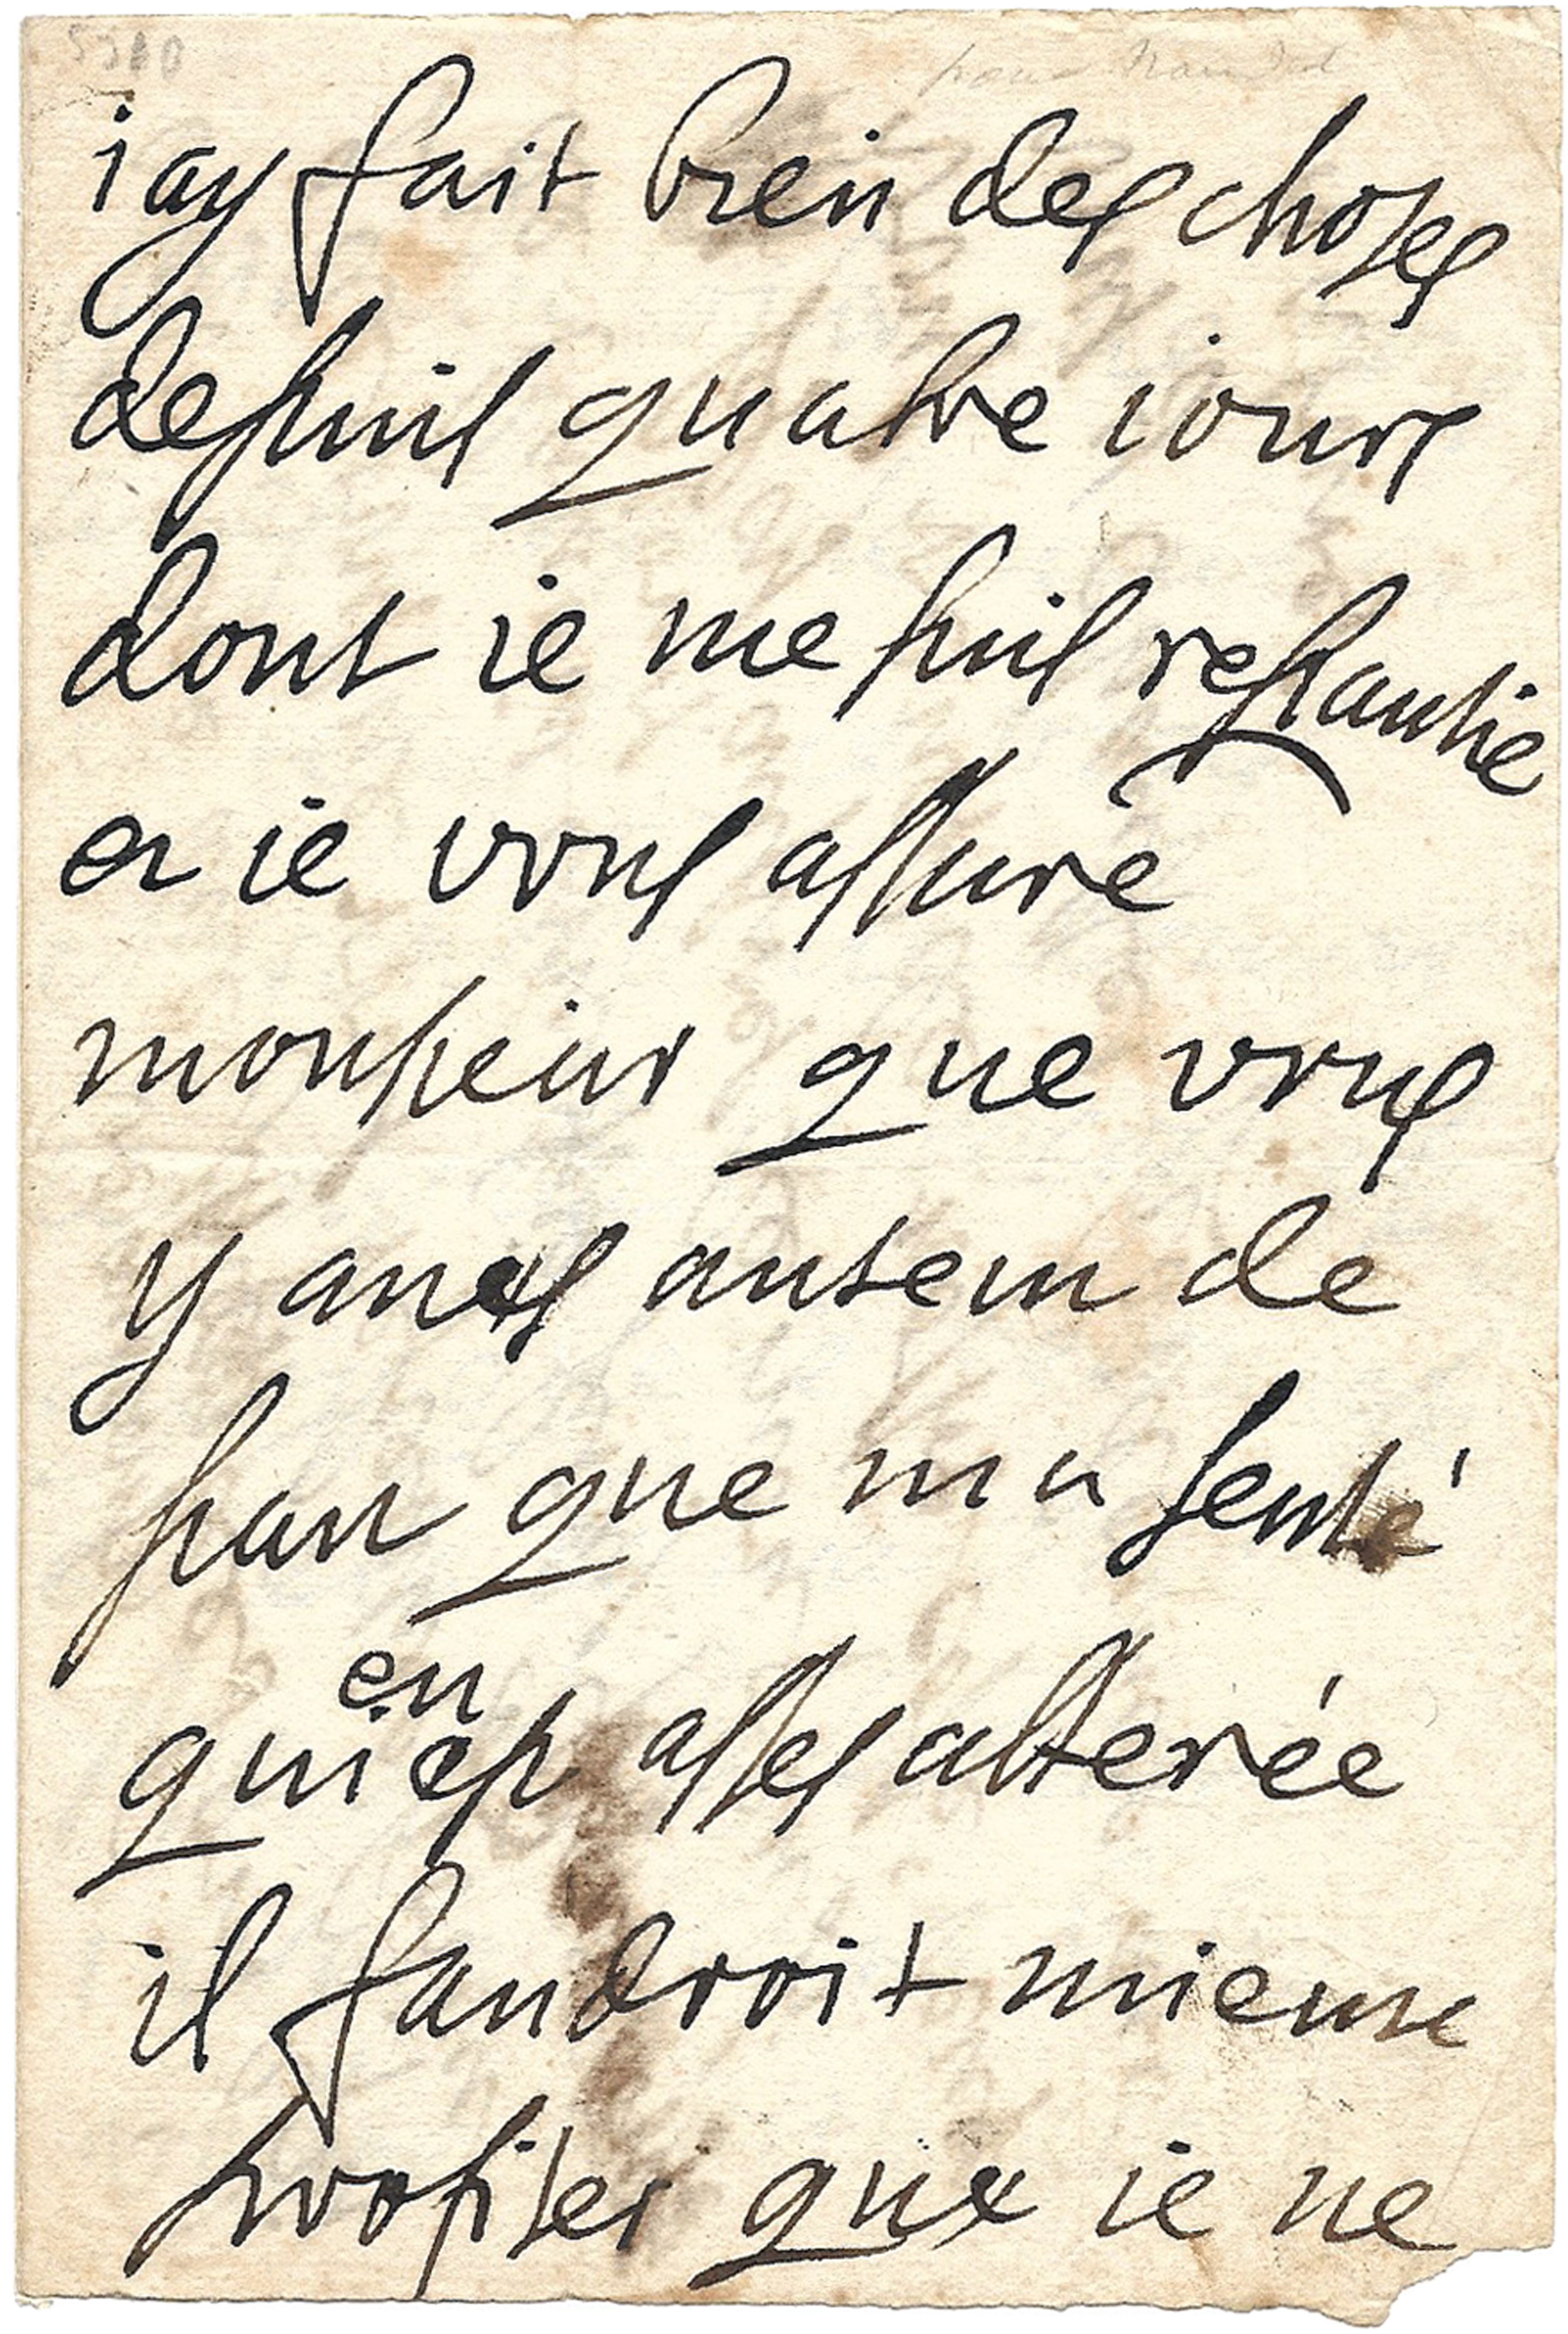 iay fait bien des choses
depuis quatre iours
dont ie me suis repantie
et ie vous assure
monsieur que vous
y aves autem de
part que ma senté
en
qui est asses alterée
il faudroit mieux
profiter que ie ne